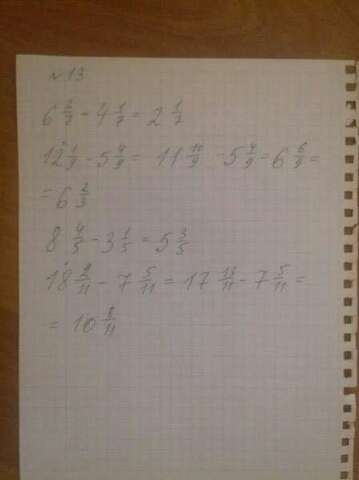 №13
6 2/7 - 4 1/7 = 2 1/7
12 1/9 - 5 4/9 = 11 10/9 - 5 4/9 = 6 6/9 =
= 6 2/3
8 4/5 - 3 1/5 = 5 3/5
18 2/11 - 7 5/11 = 17 13/11 - 7 5/11 =
= 10 8/11